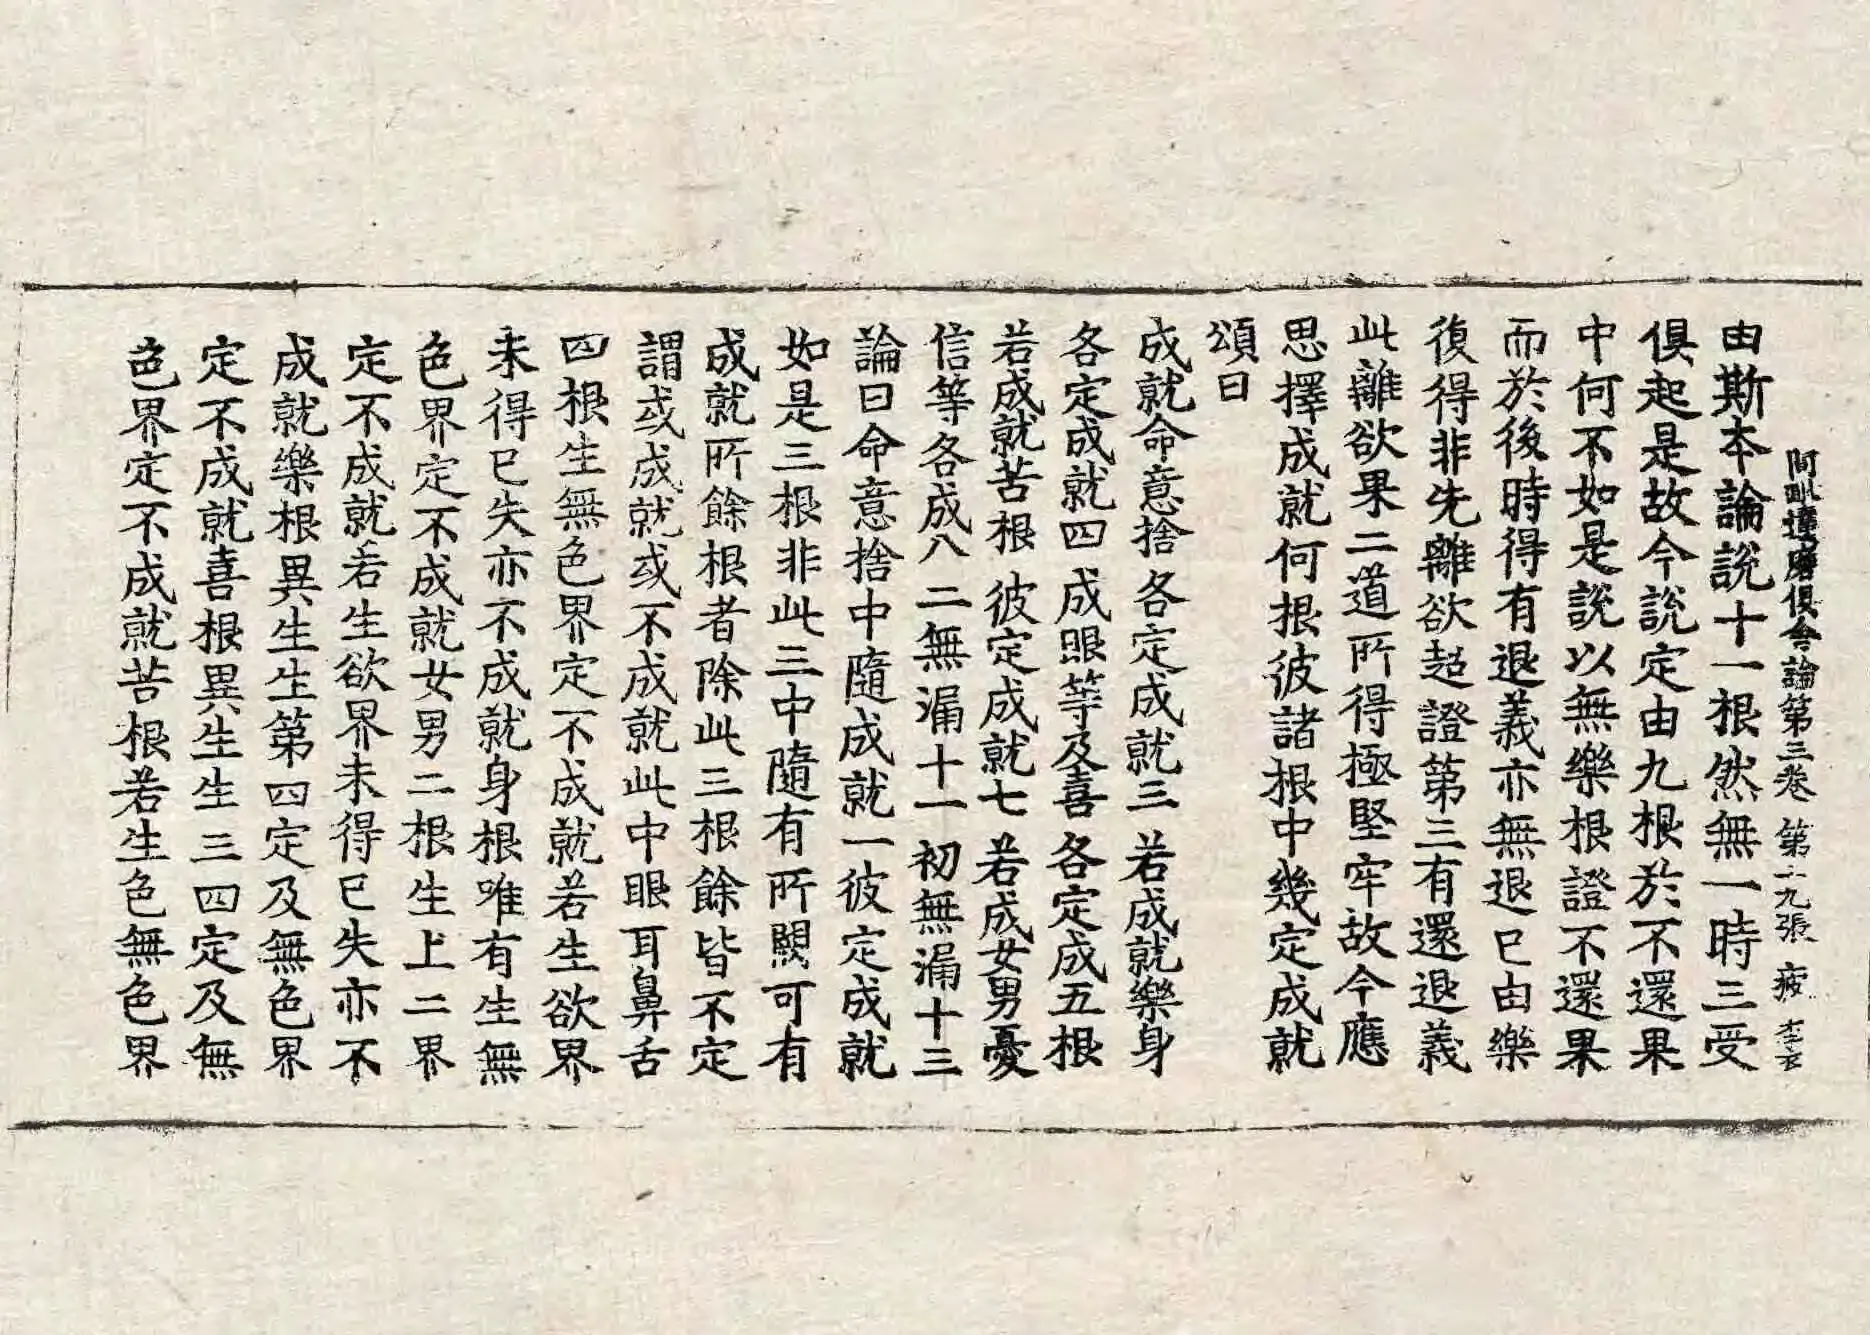 阿毗達磨俱舍論第三卷 第十九張 疲 李玄
由斯本論說十一根然無一時三受
俱起是故今說定由九根於不還果
中何不如是說以無樂根證不還果
而於後時得有退義亦無退已由樂
復得非先離欲超證第三有還退義
此離欲果二道所得極堅牢故今應
思擇成就何根彼諸根中幾定成就
頌曰
成就命意捨 各定成就三 若成就樂身
各定成就四 成眼等及喜 各定成五根
若成就苦根 彼定成就七 若成女男憂
信等各成八 二無漏十一 初無漏十三
論曰命意捨中隨成就一彼定成就
如是三根非此三中隨有所闕可有
成就所餘根者除此三根餘皆不定
謂或成就或不成就此中眼耳鼻舌
四根生無色界定不成就若生欲界
未得已失亦不成就身根唯有生無
色界定不成就女男二根生上二界
定不成就若生欲界未得已失亦不
成就樂根異生生第四定及無色界
定不成就喜根異生生三四定及無
色界定不成就苦根若生色無色界